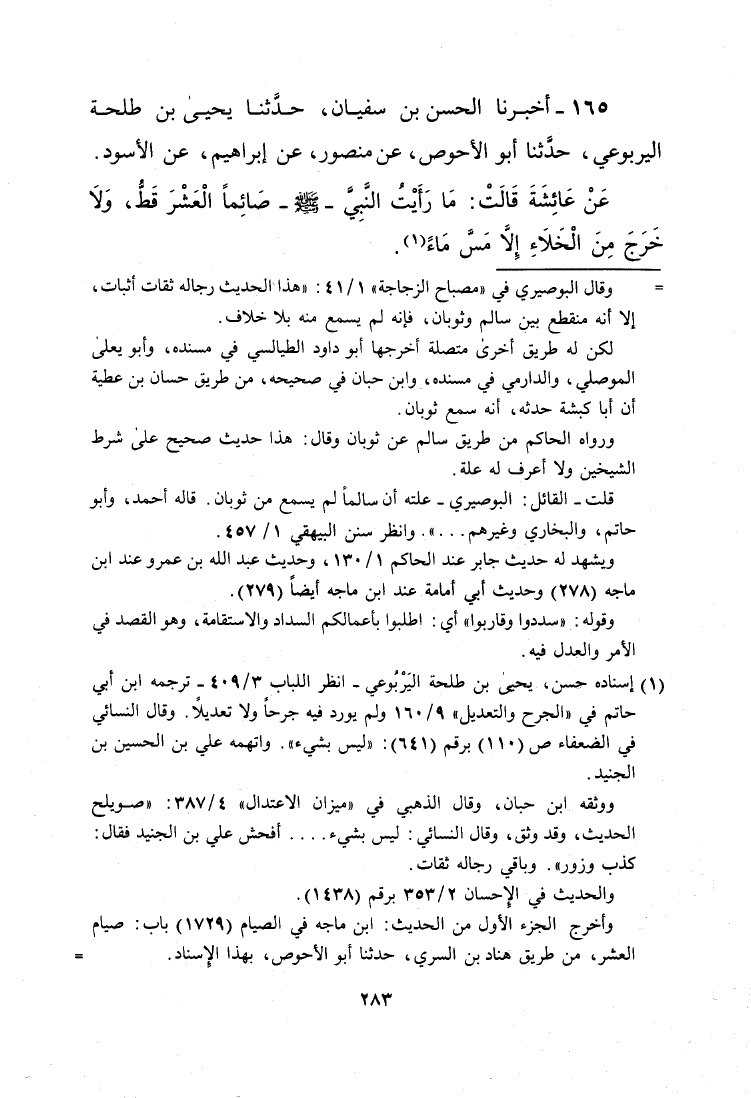 ١٦٥ ـ أخبـرنا الحسن بن سفيـان، حـدَّثنـا يحيـىٰ بن طلحـة
اليربوعي، حدَّثنا أبو الأحوص، عن منصور، عن إبراهيم، عن الأسود.
عَنْ عَائِشَةَ قَالَتْ: مَا رَأَيْتُ النَّبِيَّ ـ ﷺ ـ صَائِماً الْعَشْرَ قَطُّ، وَلَا
خَرَجَ مِنَ الْخَلَاءِ إِلَّا مَسَّ مَاءً(١).
= وقال البوصيري في «مصباح الزجاجة» ٤١/١: «هذا الحديث رجاله ثقات أثبات،
إلا أنه منقطع بين سالم وثوبان، فإنه لم يسمع منه بلا خلاف.
لكن له طريق أخرىٰ متصلة أخرجها أبو داود الطيالسي في مسنده، وأبو يعلىٰ
الموصلي، والدارمي في مسنده، وابن حبان في صحيحه، من طريق حسان بن عطية
أن أبا كبشة حدثه، أنه سمع ثوبان.
ورواه الحاكم من طريق سالم عن ثوبان وقال: هذا حديث صحيح علىٰ شرط
الشيخين ولا أعرف له علة.
قلت ـ القائل: البوصيري ـ علته أن سالماً لم يسمع من ثوبان. قاله أحمد، وأبو
حاتم، والبخاري وغيرهم...». وانظر سنن البيهقي ١/ ٤٥٧.
ويشهد له حديث جابر عند الحاكم ١٣٠/١، وحديث عبد الله بن عمرو عند ابن
ماجه (٢٧٨) وحديث أبي أمامة عند ابن ماجه أيضاً (٢٧٩).
وقوله: «سددوا وقاربوا» أي: اطلبوا بأعمالكم السداد والاستقامة، وهو القصد في
الأمر والعدل فيه.
(١) إسناده حسن، يحيىٰ بن طلحة اليَرْبُوعي ـ انظر اللباب ٤٠٩/٣ ـ ترجمه ابن أبي
حاتم في «الجرح والتعديل» ١٦٠/٩ ولم يورد فيه جرحاً ولا تعديلاً. وقال النسائي
في الضعفاء ص (١١٠) برقم (٦٤١): «ليس بشيء». واتهمه علي بن الحسين بن
الجنيد.
ووثقه ابن حبان، وقال الذهبي في «ميزان الاعتدال» ٣٨٧/٤: «صـويلح
الحديث، وقد وثق، وقال النسائي: ليس بشيء.... أفحش علي بن الجنيد فقال:
كذب وزور». وباقي رجاله ثقات.
والحديث في الإحسان ٣٥٣/٢ برقم (١٤٣٨).
وأخرج الجزء الأول من الحديث: ابن ماجه في الصيام (١٧٢٩) باب: صيام
العشر، من طريق هناد بن السري، حدثنا أبو الأحوص، بهذا الإسناد. =
٢٨٣